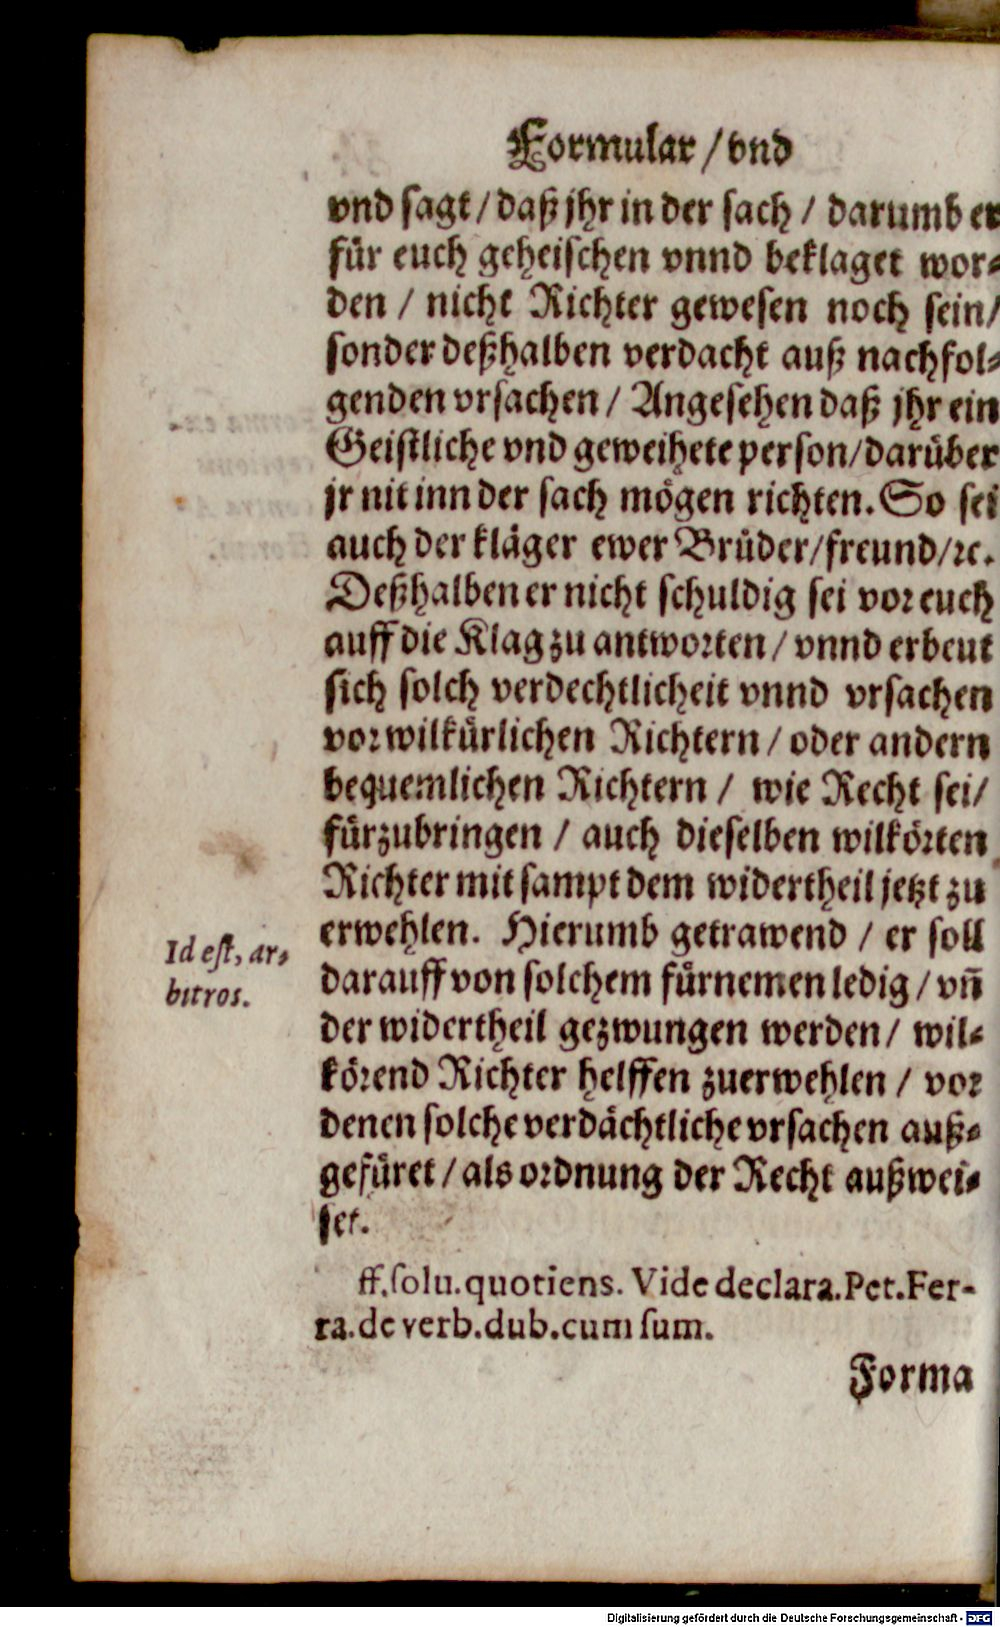 Formular / vnd
vnd sagt / daß jhr in der sach / darumb er
für euch geheischen vnnd beklaget wor-
den / nicht Richter gewesen noch sein /
sonder deßhalben verdacht auß nachfol-
genden vrsachen / Angesehen daß jhr ein
Geistliche vnd geweihete person / darüber
jr nit inn der sach mögen richten. So sei
auch der kläger ewer Brüder / freund / ꝛc.
Deßhalben er nicht schuldig sei vor euch
auff die Klag zu antworten / vnnd erbeut
sich solch verdechtlicheit vnnd vrsachen
vor wilkürlichen Richtern / oder andern
bequemlichen Richtern / wie Recht sei /
fürzubringen / auch dieselben wilkörten
Richter mit sampt dem widertheil jetzt zu
erwehlen. Hierumb getrawend / er soll
Id est, ar-
bitros.
darauff von solchem fürnemen ledig / vñ
der widertheil gezwungen werden / wil-
körend Richter helffen zuerwehlen / vor
denen solche verdächtliche vrsachen auß-
gefüret / als ordnung der Recht außwei-
set.
ff. solu. quotiens. Vide declara. Pet. Fer-
ra. de verb. dub. cum sum.
Forma
Digitalisierung gefördert durch die Deutsche Forschungsgemeinschaft - DFG